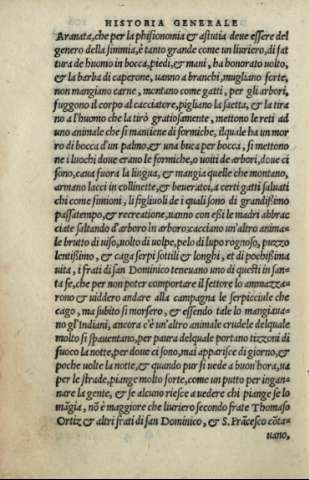 HISTORIA GENERALE
Aranata, che per la phisionomia & astutia deue essere del
genero della simmia, è tanto grande come un liuriero, di fat
tura de huomo in bocca, piedi, & mani, ha honorato uolto,
& la barba di caperone, uanno a branchi, mugliano forte,
non mangiano carne, montano come gatti, per gli arbori,
fuggono il corpo al cacciatore, pigliano la saetta, & la tira
no a l'huomo che la tirò gratiosamente, mettono le reti ad
uno animale che si mantiene di formiche, ilquale ha un mor
ro di bocca d'un palmo, & una buca per bocca, si mettono
ne i luochi doue erano le formiche, o uoiti de arbori, doue ci
sono, caua fuora la lingua, & mangia quelle che montano,
armano lacci in collinette, & beueratoi, a certi gatti saluati
chi come simioni, li figliuoli de i quali sono di grandissimo
passatempo, & recreatione, uanno con essi le madri abbrac
ciate saltando d'arboro in arboro: cacciano un'altro anima-
le brutto di uiso, uolto di uolpe, pelo di lupo rognoso, puzzo
lentissimo, & caga serpi sottili & longhi, et di pochissima
uita, i frati di san Dominico teneuano uno di questi in san-
ta fe, che per non poter comportare il fettore lo ammazza-
rono & uiddero andare alla campagna le serpicciule che
cago, ma subito si morsero, & essendo tale lo mangiaua-
no gl'Indiani, ancora c'è un'altro animale crudele delquale
molto si spauentano, per paura delquale portano tizzoni di
fuoco la notte, per doue ci sono, mai apparisce di giorno, &
poche uolte la notte, & quando pur si uede a buon'hora, ua
per le strade, piange molto forte, come un putto per ingan-
nare la gente, & se alcuno riesce a uedere chi piange se lo
mãgia, nõ è maggiore che liuriero secondo frate Thomaso
Ortiz & altri frati di san Dominico, & S. Frãcesco cõta-
uano,